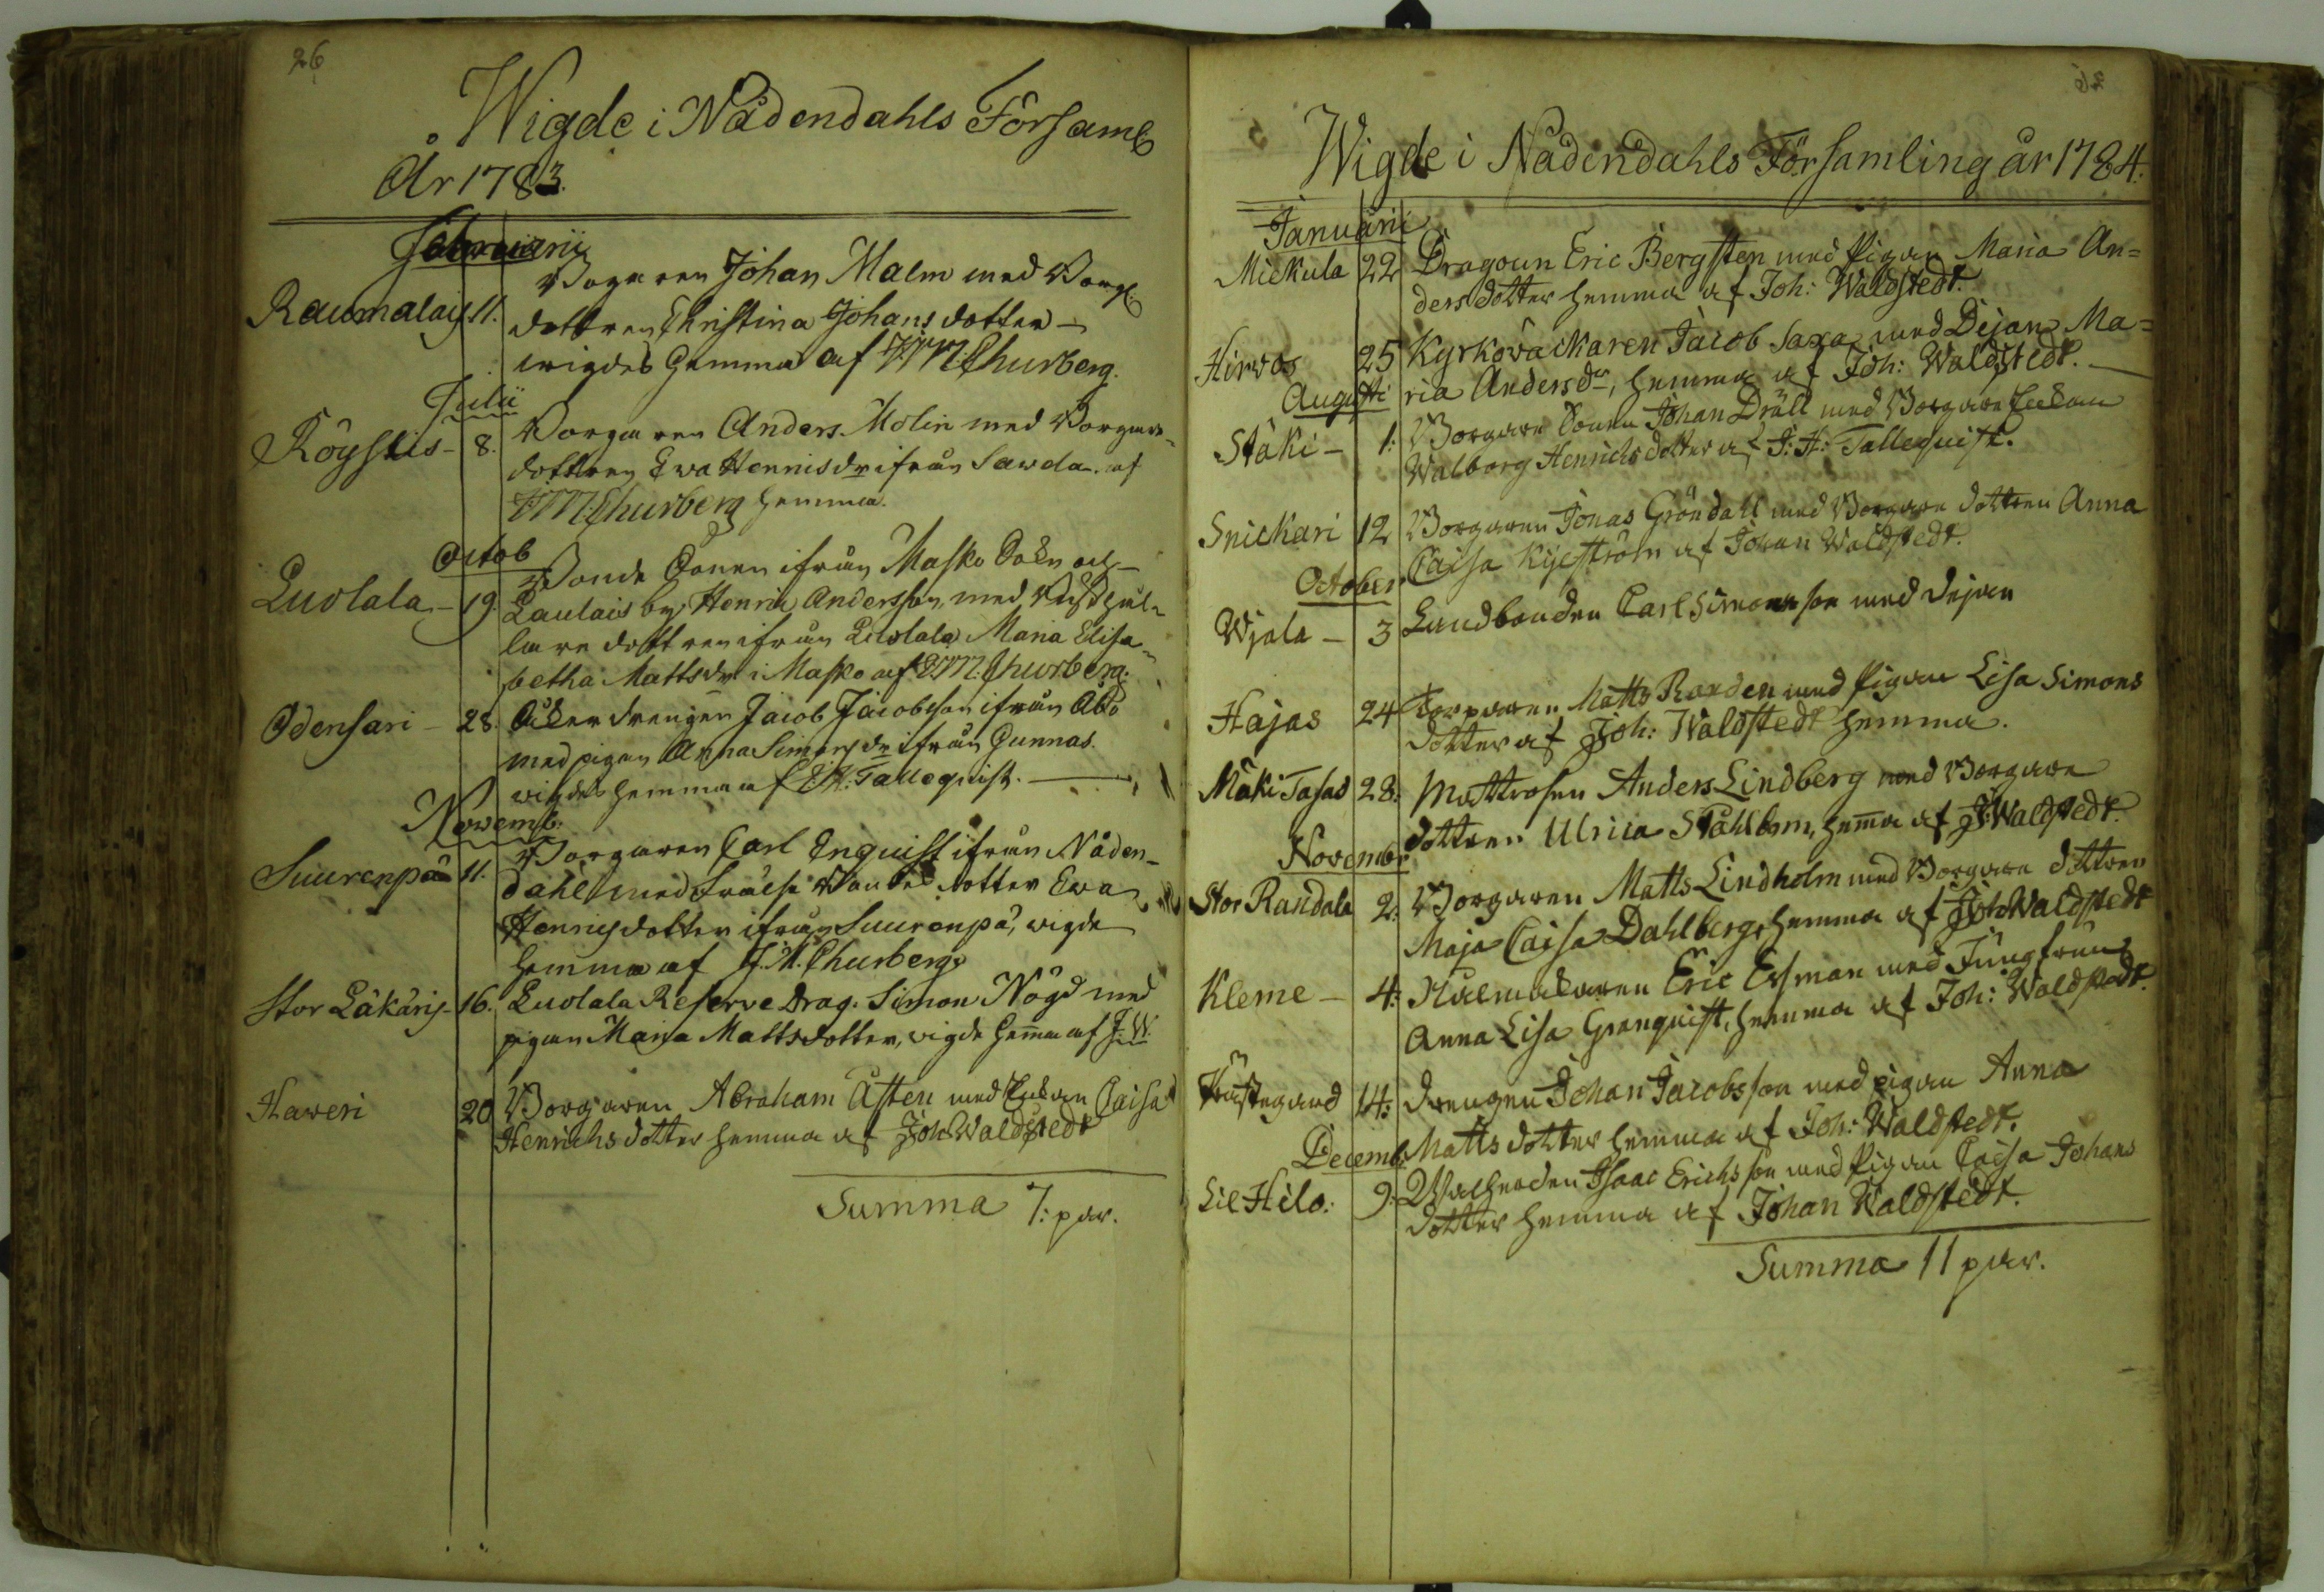 26
Wigde i Nådendahls Församl
År 1783.
Februarii
Borgaren Johan Malm med Borg:
Raumalais 11. dottren Christina Johans dotter
wigdes hemma af J: M: Churberg.
Julii
Röystis - 8. Borgaren Anders Molin med Borgare
dottren Ewa Hennisdr ifrån Sawda. af
J: M: Churberg hemma.
Octob
Bonde Sonen ifrån Masko Sokn och
Luolala - 19. Laulais by Henric Andersson, med
dottren ifrån Luolala Maria Elisa
betha Mattsdr i Masko af J: M: Churberg.
Odensari - 28. Åkerdrengen Jacob Jacobsson ifrån Åbo
med pigan Anna Simonsdr ifrån Gunnas.
wigdes hemma af J: H: Tallequist.
Novemb:
Suurenpää 11. Borgaren Carl Enquist ifrån Nåden-
dahl med Frälse Bonde dotter Ewa
Hennisdotter ifrån Suurenpä, wigde
hemma af J. M. Churberg.
Stor Läkäris - 16. Luolala Reserve Drag. Simon Nögd med
pigan Maria Mattsdotter, wigde hem̄a af J. W.
Haweri 20 Borgaren Abraham Åsten med Enkan Caisa
Henrichsdotter hemma af Joh: Waldstedt
Summa 7: par.
26
Wigde i Nådendahls Församling år 1784.
Januarii
Mickula 22 Dragoun Eric Bergsten med Pigan Maria An=
dersdotter hemma af Joh: Waldstedt.
Hirvos 25 Kyrkoväckaren Jacob Saxa med Dejan Ma=
Augusti ria Andersdr, hemma af Joh: Waldstedt.
Stäki - 1: Borgare Sonen Johan Dräll med Borgare Enkan
Walborg Henrichsdotter af J: H: Tallequist.
Snickari 12 Borgaren Jonas Gröndahl med Borgare dottren Anna
Caisa Kijeström af Johan Waldstedt.
October
Wjala - 3 Landbonden Carl Simonsson med dejan
Hajas 24 Torparen Matts Randen med Pigan Lisa Simons
dotter af Joh: Waldstedt hemma.
Mäki Tasas 28: Mattrosen Anders Lindberg med Borgare
dottren Ulrica Ståhlbom, hem̄a af J: Waldstedt.
Novembr
Stor Randala 2: Borgaren Matts Lindholm med Borgare dottren
Maja Caisa Dahlberg, hemma af Joh: Waldstedt
Kleme - 4: Eric Essman med Jungfrun
Anna Lisa Grenquist, hemma af Joh: Waldstedt.
Prästegård 14: Drengen Johan Jacobsson med pigan Anna
Matts dotter hemma af Joh: Waldstedt.
Decemb.
Lil Hilo: 9: Isaac Erichsson med Pigan Caisa Johans
dotter hemma af Johan Waldstedt.
Summa 11 par.